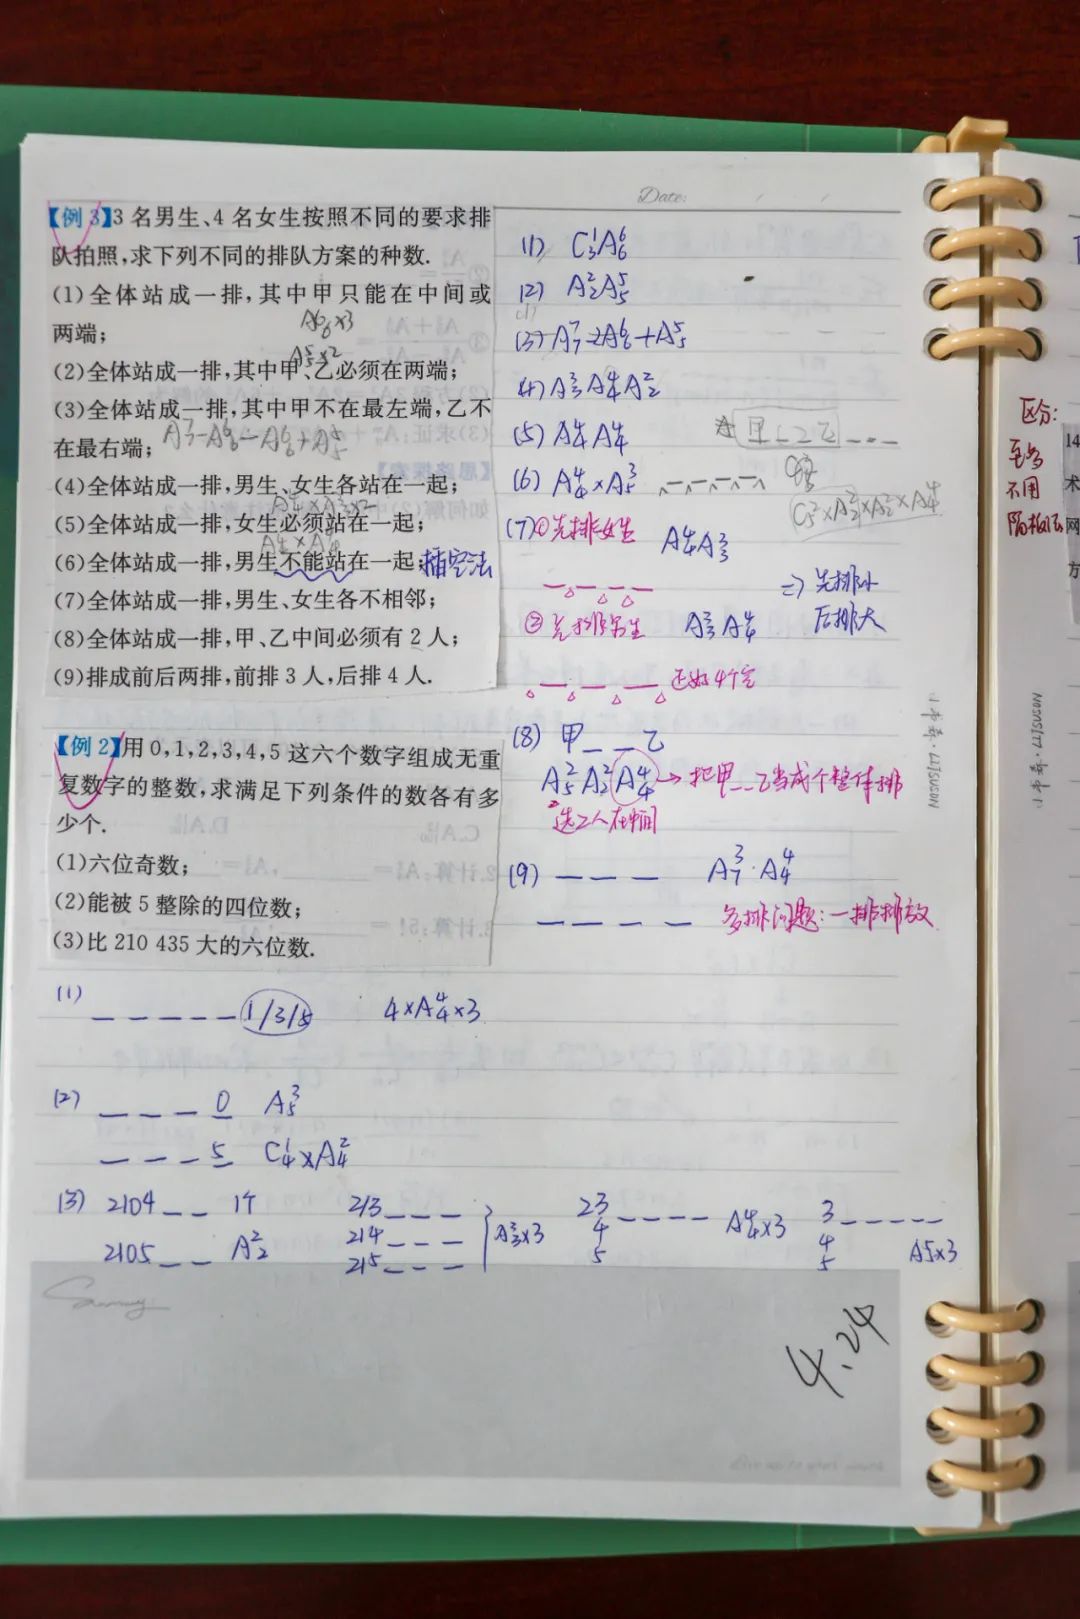 Date:
【例 3】3 名男生、4 名女生按照不同的要求排
队拍照,求下列不同的排队方案的种数.
(1)全体站成一排,其中甲只能在中间或
两端;
A⁶₆×3
A⁵₅×2
(2)全体站成一排,其中甲、乙必须在两端;
(3)全体站成一排,其中甲不在最左端,乙不
在最右端;
A⁷₇-A⁶₆-A⁶₆+A⁵₅
(4)全体站成一排,男生、女生各站在一起;
A⁴₄×A³₃×2
(5)全体站成一排,女生必须站在一起;
A⁴₄×A⁴₄
(6)全体站成一排,男生不能站在一起;插空法
(7)全体站成一排,男生、女生各不相邻;
(8)全体站成一排,甲、乙中间必须有 2 人;
(9)排成前后两排,前排 3 人,后排 4 人.
(1) C¹₃A⁶₆
(2) A²₂A⁵₅
(3) A⁷₇-2A⁶₆+A⁵₅
(4) A³₃A⁴₄A²₂
(5) A⁴₄A⁴₄
(6) A⁴₄×A³₅
C²₅×A²₂×A²₂×A⁴₄
(7)①先排女生 A⁴₄A³₃
②先排男生 A³₃A⁴₄
=> 先排小
后排大
还好4个空
(8) 甲_ _乙
A²₅A²₂A⁴₄→把甲_ _乙当成个整体排
选2人在中间
(9) _ _ _ A³₇·A⁴₄
_ _ _ _ 多排问题:一排排放
【例 2】用 0,1,2,3,4,5 这六个数字组成无重
复数字的整数,求满足下列条件的数各有多
少个.
(1)六位奇数;
(2)能被 5 整除的四位数;
(3)比 210 435 大的六位数.
(1) _ _ _ _ _ 1/3/5 4×A⁴₄×3
(2) _ _ _ 0 A³₅
_ _ _ 5 C¹₄×A²₄
(3) 2104_ _ 1个
2105_ _ A²₂
213_ _ _
214_ _ _
215_ _ _
A³₃×3
23
4 _ _ _ _ A⁴₄×3
5
3 _ _ _ _ _
4
5 A⁵₅×3
4.24
小本森·LIJSUSON
小本森·LIJSUSON
区分:
不用
隔板法
14
术
网
方